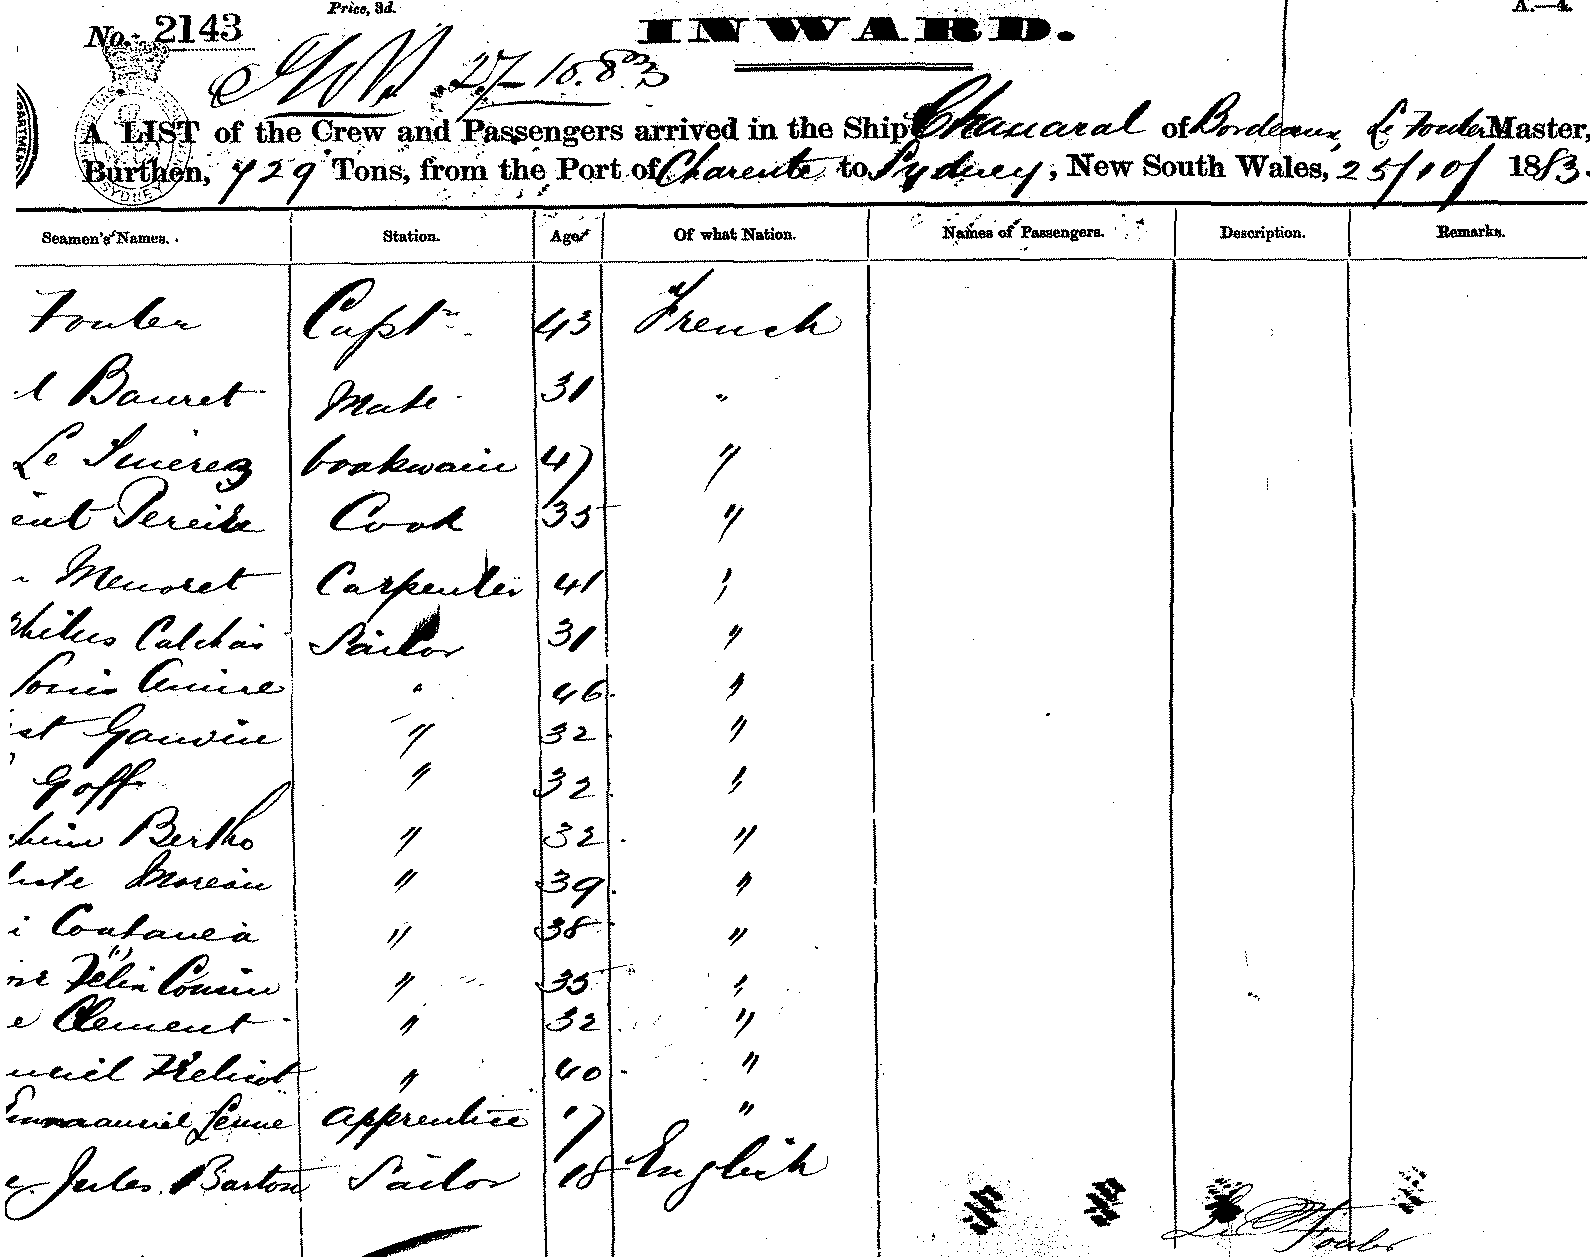 Price, 3d.
A.—4.
No. 2143
INWARD.
27-10.83
A LIST of the Crew and Passengers arrived in the Ship Chanaral of Bordeaux, Le Fouler Master,
Burthen, 429 Tons, from the Port of Charente to Sydney, New South Wales, 25/10/ 1883.
Seamen's Names. Station. Age Of what Nation. Names of Passengers. Description. Remarks.
Fouler Captn 43 French
Bauret Mate 31 "
Le boatswain 47 "
Cook 35 "
Menoret Carpenter 41 "
Sailor 31 "
Louis " 46 "
st Gauvin " 32 "
Goff " 32 "
Bertho " 32 "
Moreau " 39 "
" 38 "
Félix Cousin " 35 "
e Clement " 32 "
" 40 "
Emmanuel apprentice 17 "
Jules Barton Sailor 18 English
Le Fouler